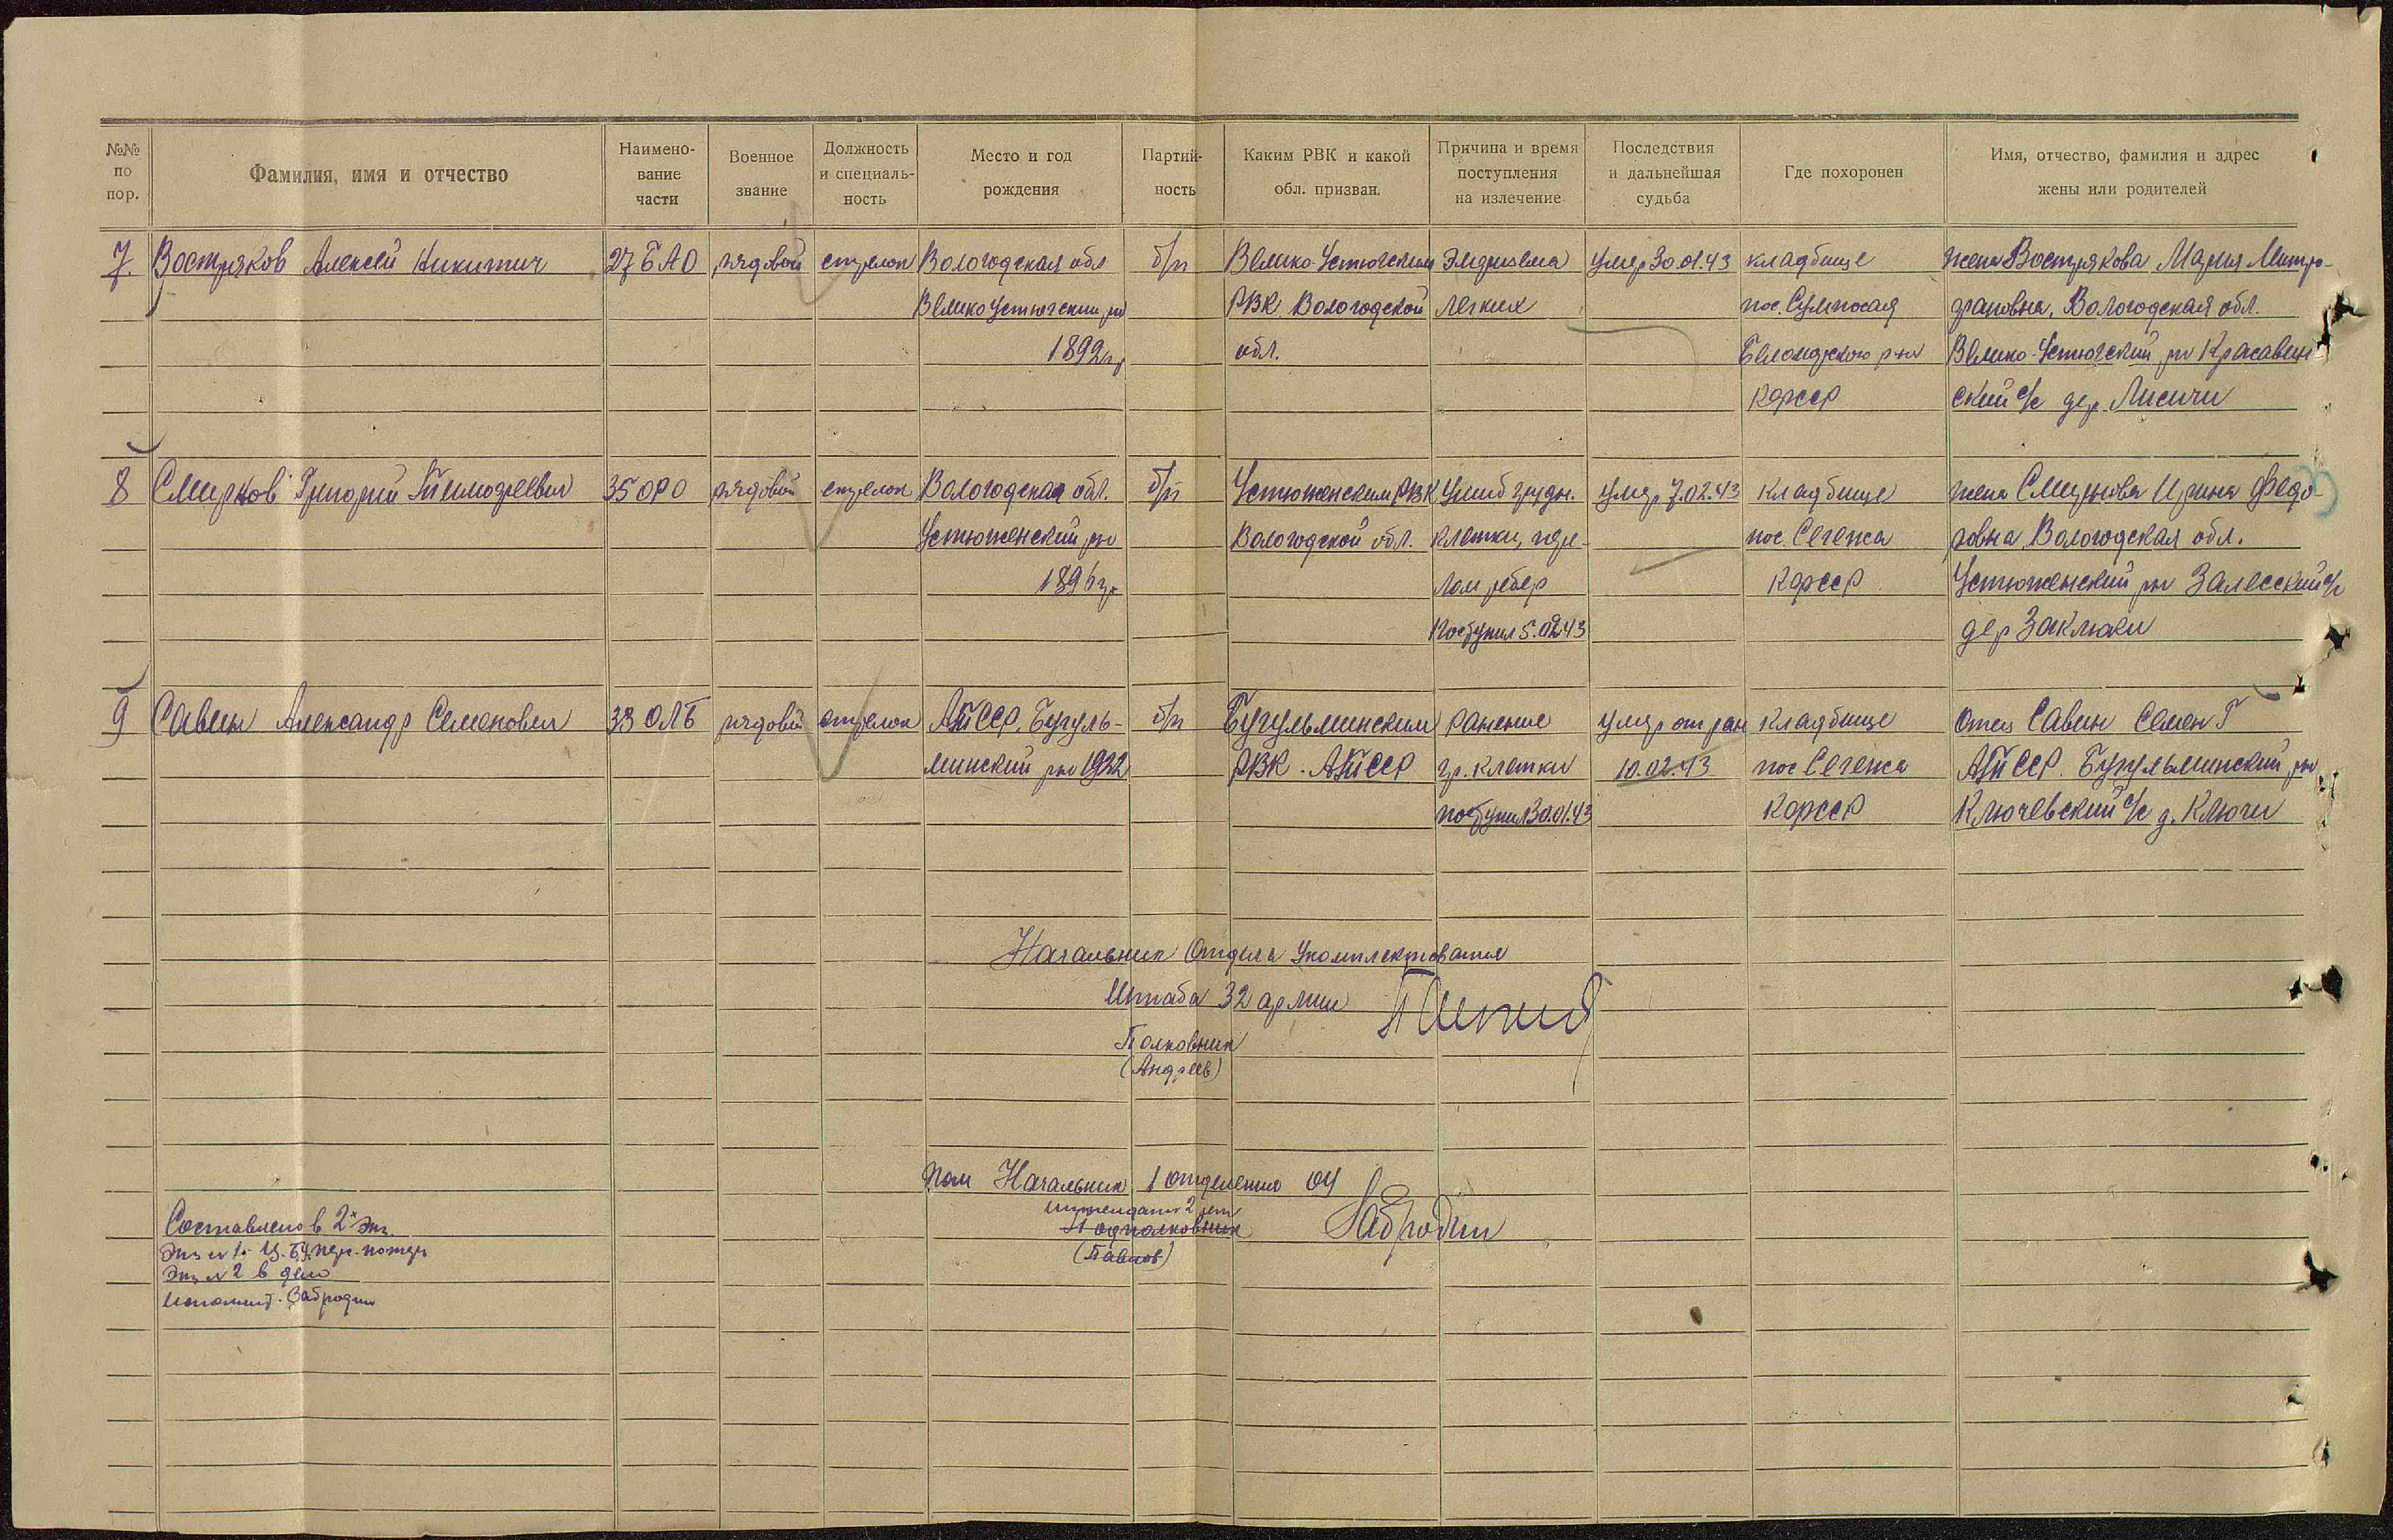 №№ по пор.
Фамилия, имя и отчество
Наимено-вание части
Военное звание
Должность и специаль-ность
Место и год рождения
Партий-ность
Каким РВК и какой обл. призван.
Причина и время поступления на излечение
Последствия и дальнейшая судьба
Где похоронен
Имя, отчество, фамилия и адрес жены или родителей
7. Востряков Алексей Никитич 27 БАО рядовой стрелок Вологодская обл б/п Велико-Устюгским Эмфизема умер 30.01.43 кладбище жена Вострякова Мария Митро-
Велико Устюгский рн РВК Вологодской легких пос. Сумпосад фановна, Вологодская обл.
1892 гр обл. Беломорского р-на Велико-Устюгский рн Красавин
КФССР ский с/с дер. Лисичи
8 Смирнов Григорий Тимофеевич 35 ОРО рядовой стрелок Вологодская обл. б/п Устюженским РВК Ушиб грудн. умер 7.02.43 кладбище жена Смирнова Ирина Федо-
Устюженский рн Вологодской обл. клетки, пере- пос. Сегежа ровна Вологодская обл.
1896 гр лом ребер КФССР Устюженский рн Залесский с/с
Поступил 5.02.43 дер Заклюки
9 Савин Александр Семенович 33 ОЛБ рядовой стрелок АТССР, Бугуль- б/п Бугульминским ранение умер от ран кладбище отец Савин Семен Г
минский рн 1922 РВК. АТССР гр. клетки 10.02.43 пос Сегежа АТССР. Бугульминский рн
поступил 30.01.43 КФССР Ключевский с/с д. Ключи
Начальник Отдела Укомплектования
Штаба 32 армии
Полковник
(Андреев)
Пом Начальник 1 отделения ОУ
интендант 2 ранг
Подполковник
(Павлов)
Забродин
Составлено в 2х экз.
Экз № 1. Ц. Б. пер. потерь
Экз № 2 в дело
исполнит. Забродин